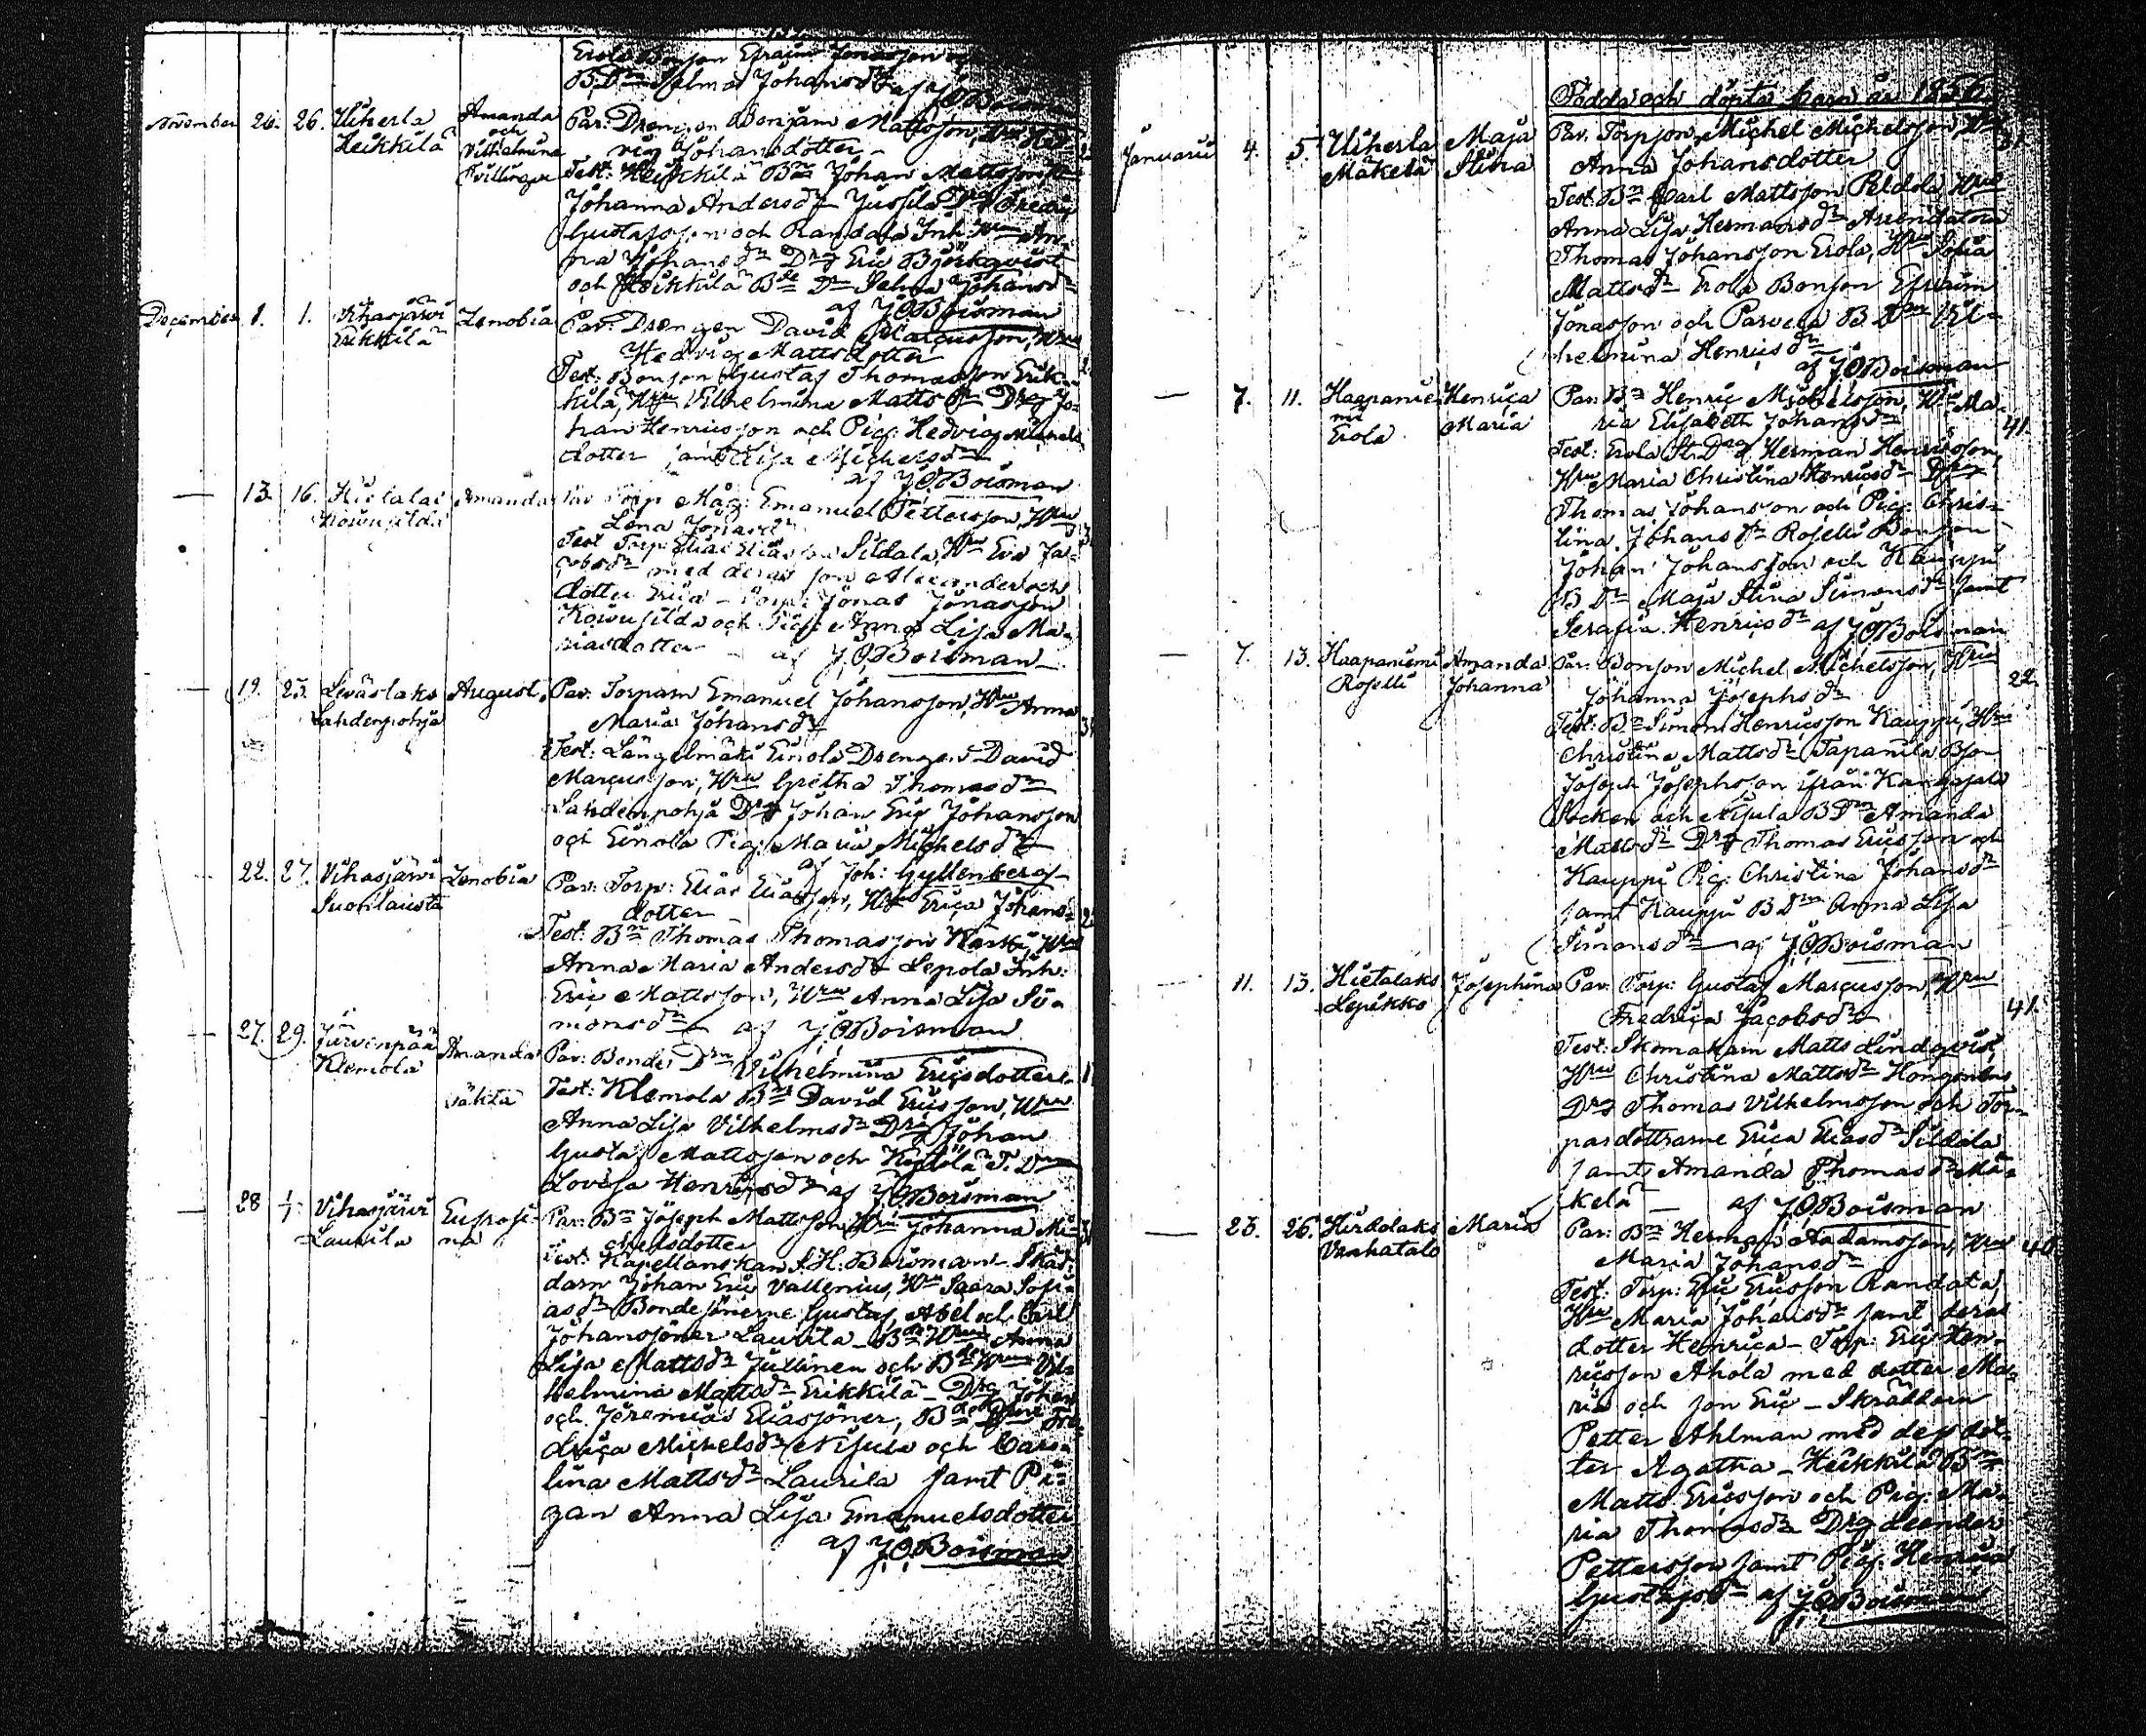 Erola Bonson Efraim Jonasson
B. Drn Selma Johansdr af J O Boisman
November 26. 26. Uiherla Heikkilä Amanda och Vilhelmina Tvillingar
Par: Drengen Benjam Mattsson, Hru Hed-
vig Johansdotter
Test: Heikkilä Bn Johan Mattsson
Johanna Andersdr Jussila Drg Fredric
Gustafsson och Randala Inh: Hru An-
na Johansdr Drg Eric Björkqvist
och Heikkilä Bde Dr Selma Johansdr
af J O Boisman
December 1. 1. Vihasjärvi Erikkilä Zenobia
Par: Drengen David Marcusson, Hru
Hedvig Mattsdotter
Test: Bonson Gustaf Thomasson Erik-
kilä, Hru Vilhelmina Mattsdr Drg Jo-
han Henricsson och Pig: Hedvig Michels
dotter samt Lisa Michelsdr
af J O Boisman
— 13. 16. Hietalaks Kowusilda Amanda
Par Torp Måg: Emanuel Pettersson, Hru
Lena Jonasdr
Test Torp: Elias Eliasson Sildala, Hru Eva Ja-
cobsdr med deras son Alexander och
dotter Erica – Torp: Jonas Jonasson
Kowusilda och Pig: Anna Lisa Ma-
riasdotter – af J O Boisman
— 19. 25. Leväslaks Lahdenpohja August
Par. Torparn Emanuel Johansson, Hru Anna
Maria Johansdr
Test: Längelmäki Einola Drengen David
Marcusson, Hru Gretha Thomasdr
Lahdenpohja Drg Johan Eric Johansson
och Einola Pig: Maria Michelsdr
af Joh: Gyllenberg
22. 27. Vihasjärvi Suonlaiusta Zenobia
Par: Torp: Elias Eliasson, Hru Erica Johans-
dotter
Test: Bn Thomas Thomasson Kaski, Hru
Anna Maria Andersdr Lepola Inh:
Eric Mattsson, Hru Anna Lisa Si-
monsdr af J O Boisman
27. 29. Järvenpää Klemola Amanda oäkta
Par: Bonde Drn Vilhelmina Ericsdotter
Test: Klemola Bn David Ericsson, Hru
Anna Lisa Vilhelmsdr Drg Johan
Gustaf Mattsson och T. Drn
Lovisa Henricsdr af J O Boisman
— 28 1/1 Vihasjärvi Laurila Eufrosi-
na
Par: Bn Joseph Mattsson Hru Johanna Mi-
chelsdotter
Test: Kapellanskan S. H: Boisman Skräd-
darn Johan Eric Vallenius, Hru Saara Sofi-
asdr Bondesönerne Gustaf, Abel och Carl
Johanssöner Laurila – Bde Hru Anna
Lisa Mattsdr Jussinen och Bde Hru Vil-
helmina Mattsdr Erikkilä – Drg Johan
och Jeremias Eliassöner, Fre-
drica Michelsdr Nisula och Caro-
lina Mattsdr Laurila samt Pi-
gan Anna Lisa Emanuelsdotter
af J O Boisman
Födda och döpta barn år 1856.
Januarii 4. 5. Uiherla Mäkelä Maja Stina
Par. Torpson Michel Michelsson, Hru
Anna Johansdotter
Test: Bn Carl Mattsson Peldola, Hru
Anna Lisa Hermansdr Arrendatorn
Thomas Johansson Erola, Hru Sofia
Mattsdr Erola Bonson Efraim
Jonasson och Parvela B Drn Vil-
helmina Henricsdr
af J O Boisman
— 7. 11. Haapanie-
mi Erola Henrica Maria
Par: Bn Henric Michelsson, Hru Ma-
ria Elisabeth Johansdr 41.
Test: Erola St. Drg Herman Henricsson,
Hru Maria Christina Henricsdr Drg
Thomas Johansson och Pig: Chris-
tina Johansdr Roselli Bonson
Johan Johansson och Kauppi
B Dr Maja Stina Simonsdr samt
Serafia Henricsdr af J O Boisman
— 7. 13. Haapaniemi Roselli Amanda Johanna
Par. Bonson Michel Michelsson, Hru
Johanna Josephsdr 22.
Test: Bn Simon Henricsson Kauppi, Hru
Christina Mattsdr Tapanila Bson
Joseph Josephsson ifrån Kangasala
Socken och Nisula B Drn Amanda
Mattsdr Drg Thomas Ericsson och
Kauppi Pig: Christina Johansdr
samt Kauppi B Drn Anna Lisa
Simonsdr af J O Boisman
11. 13. Hietalaks Lepikko Josephina
Par. Torp: Gustaf Marcusson, Hru
Fredrica Jacobsdr 41.
Test: Skomakarn Matts Lindqvist,
Hru Christina Mattsdr
Drg Thomas Vilhelmsson och Tor-
pardöttrarne Erica Eliasdr Sildala
samt Amanda Thomasdr Mä-
kelä – af J O Boisman
— 23. 26. Hirdolaks Vanhatalo Maria
Par: Bn Herman Aadamsson, Hru
Maria Johansdr 40.
Test: Torp: Eric Ericsson Randala,
Hru Maria Johansdr samt deras
dotter Henrica – Torp: Eric Hen-
ricsson Ahola med dotter Ma-
ria och son Eric – Skräddarn
Petter Ahlman med dess dot-
ter Agatha – Heikkilä Bn
Matts Ericsson och Pig: Ma-
ria Thomasdr Drg Leander
Pettersson samt Pig: Henrica
Gustafsdr af J O Boisman